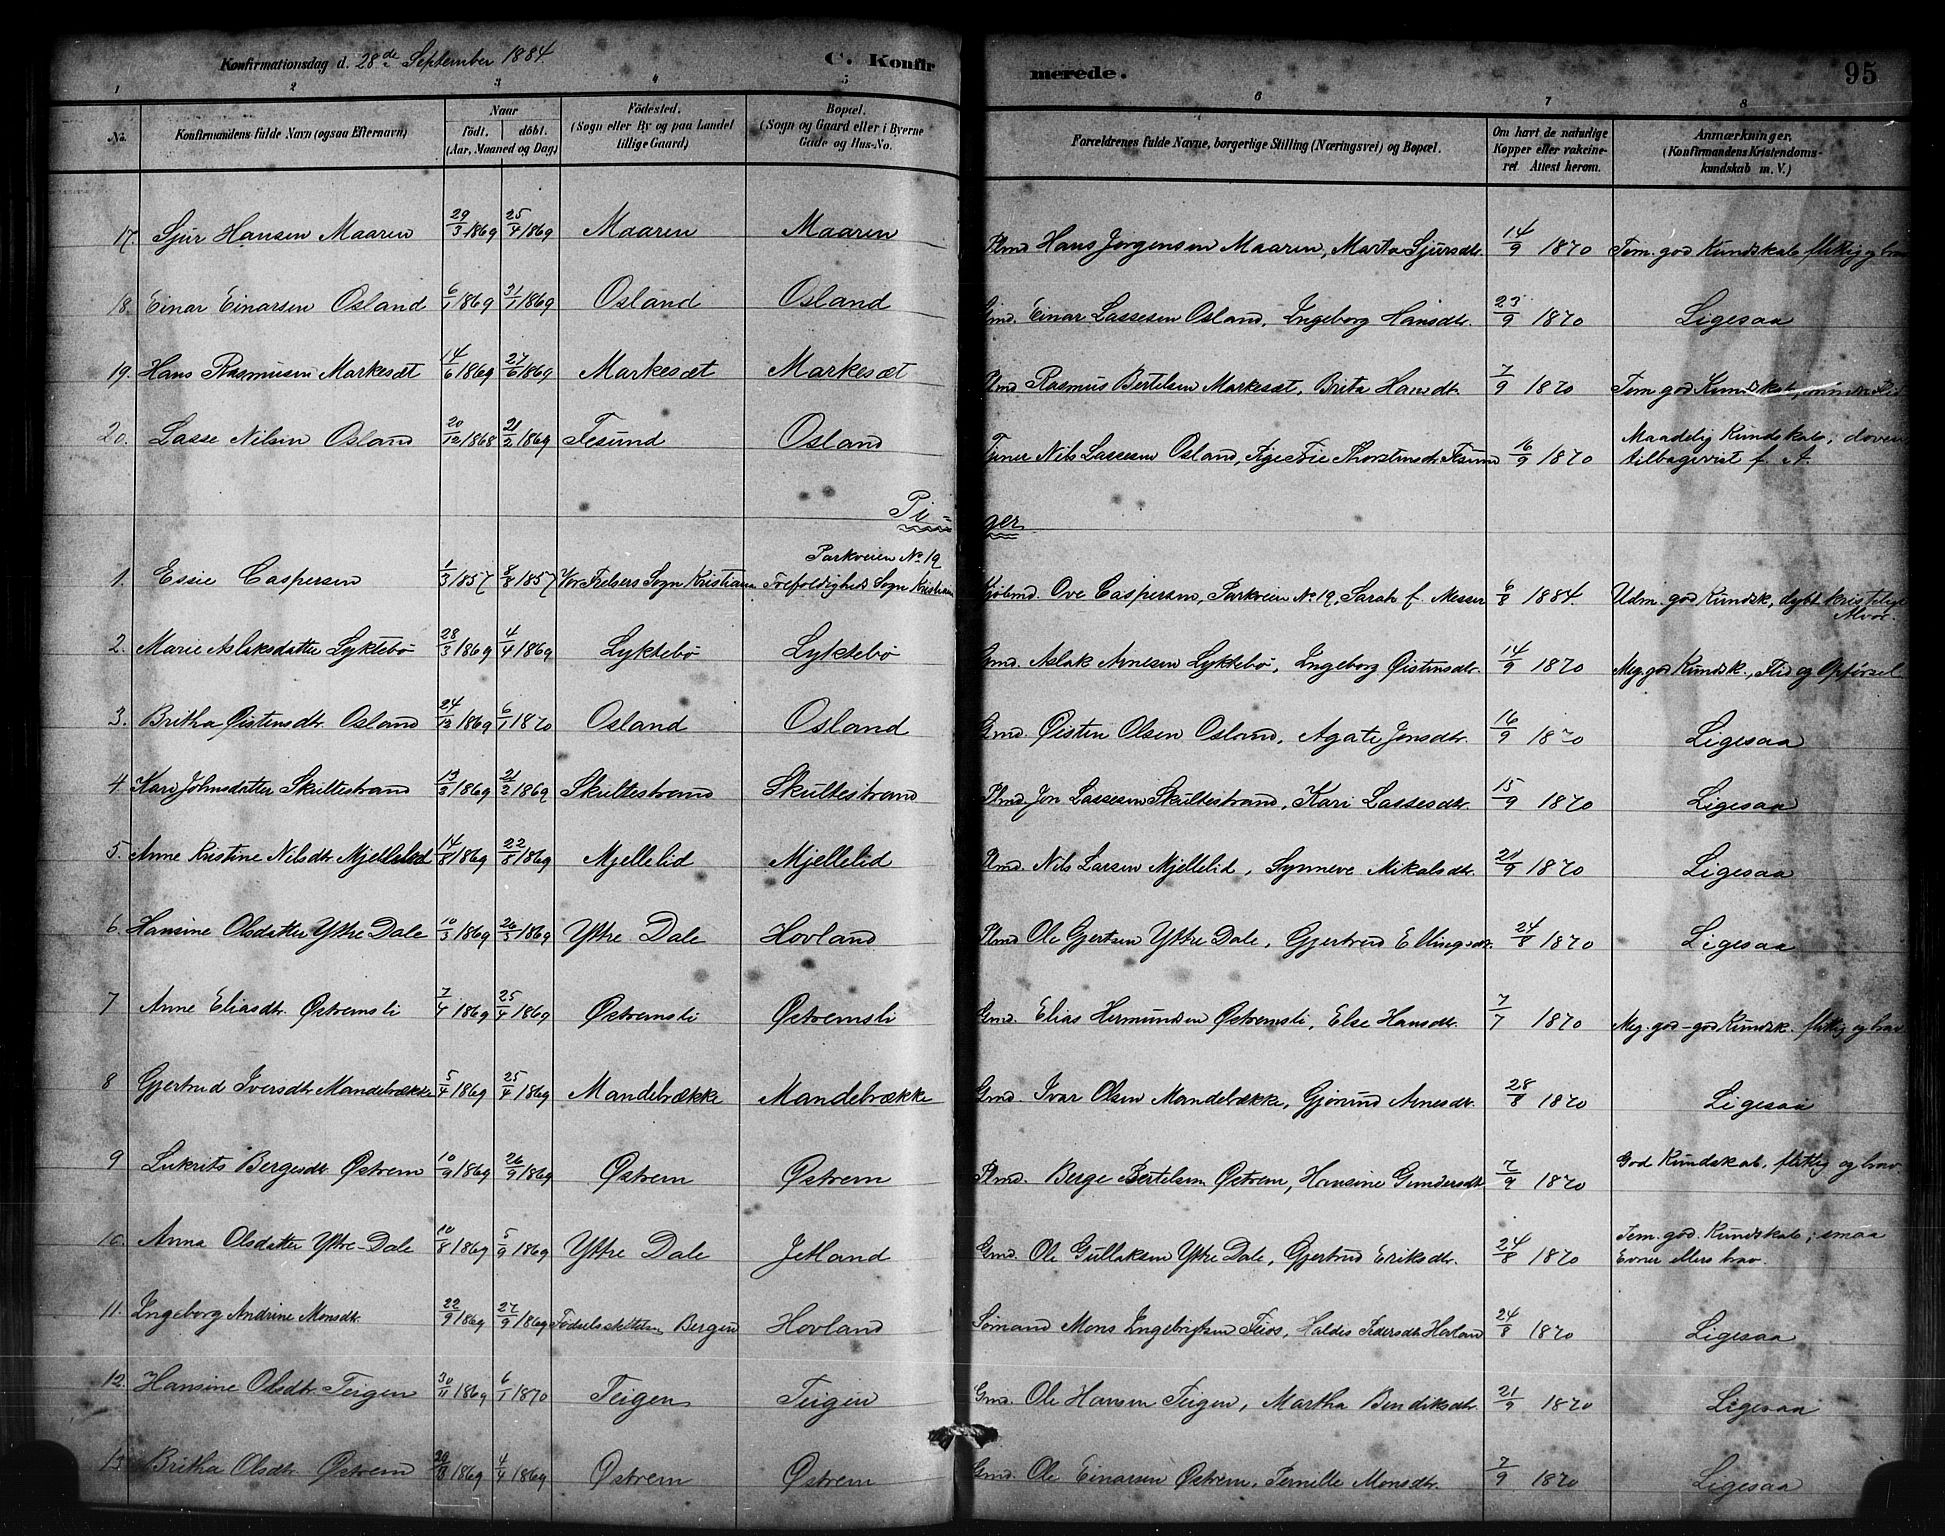 Konfirmationsdag d. 28de September 1884.
C. Konfir
merede.
95
1 2 3 4 5 6 7 8
No. Konfirmandens fulde Navn (ogsaa Efternavn) Naar født. døbt. (Aar, Maaned og Dag) Fødested. (Sogn eller By og paa Landet tillige Gaard) Bopæl. (Sogn og Gaard eller i Byerne Gade og Hus-No. Forældrenes fulde Navne, borgerlige Stilling (Næringsvei) og Bopæl. Om havt de naturlige Kopper eller vakcineret. Attest herom. Anmærkninger. (Konfirmandens Kristendomskundskab m. V.)
17. Sjur Hansen Maaren 29/3 1869 25/4 1869 Maaren Maaren Plmd Hans Jørgensen Maaren, Marta Sjursdtr. 14/9 1870 Tem. god Kundskab flittig og brav
18. Einar Einarsen Osland 6/1 1869 31/1 1869 Osland Osland Gmd. Einar Lassesen Osland, Ingeborg Hansdtr. 23/9 1870 Ligesaa
19. Hans Rasmusen Markesæt 14/6 1869 27/6 1869 Markesæt Markesæt Plmd Rasmus Bertelsen Markesæt, Brita Hansdtr. 7/9 1870 Tem. god Kundskab, mindre Flid
20. Lasse Nilsen Osland 20/12 1868 21/2 1869 Tesund Osland Tjener Nils Lassesen Osland, Pige Thorstensdtr 16/9 1870 Maadelig Kundskab, doven tilbagevist f. A.
Pi-
ger
1. Essie Caspersen 1/3 1857 8/8 1857 Vor Frelsers Sogn Kristiania Parkveien No. 19 Trefoldigheds Sogn Kristiania Kjøbmd. Ove Caspersen, Parkveien No. 19, Sarah f. Messer 6/8 1884. Udm. god Kundsk, dybt kristeligt Alvor.
2. Marie Aslaksdatter Lyktebø 28/3 1869 4/4 1869 Lyktebø Lyktebø Gmd. Aslak Arnesen Lyktebø, Ingeborg Øistensdtr. 14/9 1870 Meg. god Kundsk., Flid og Opførsel
3. Britha Øistensdtr. Osland 24/12 1869 6/1 1870 Osland Osland Gmd. Øisten Olsen Osland, Agate Jonsdtr. 16/9 1870 Ligesaa
4. Kari Johnsdatter Skultestrand 1869 21/2 1869 Skultestrand Skultestrand Plmd Jon Lassesen Skultestrand, Kari Lassesdtr. 15/9 1870 Ligesaa
5. Anne Kristine Nilsdtr. Mjellelid 14/8 1869 22/8 1869 Mjellelid Mjellelid Plmd. Nils Larsen Mjellelid, Synneve Mikalsdtr. 1870 Ligesaa
6. Hansine Olsdatter Yttre Dale 10/3 1869 26/3 1869 Yttre Dale Hovland Plmd Ole Gjertsen Yttre Dale, Gjertrud Ellingsdtr. 24/8 1870 Ligesaa
7 Anne Eliasdtr. Østremsli 7/4 1869 25/4 1869 Østremsli Østremsli Gmd. Elias Hermundsen Østremsli, Else Hansdtr. 7/7 1870 Meg. god-god Kundsk. flittig og brav
8 Gjertrud Iversdtr. Mandebrække 5/4 1869 25/4 1869 Mandebrække Mandebrække Gmd. Ivar Olsen Mandebrække, Gjørund Arnesdtr. 28/8 1870 Ligesaa
9 Lukrits Bergesdtr. Østrem 10/9 1869 26/9 1869 Østrem Østrem Plmd. Berge Bertelsen Østrem, Hansine Gundersdtr 7/9 1870 God Kundskab, flittig og brav
10. Anna Olsdatter Yttre-Dale 10/8 1869 5/9 1869 Yttre Dale Jetland Gmd. Ole Gullaksen Yttre Dale, Gjertrud Eriksdtr. 24/8 1870 Tem. god Kundskab; smaa Evner ellers brav.
11. Ingeborg Andrine Monsdtr. 22/9 1869 27/9 1869 Fødselsstiftelsen Bergen Hovland Sømand Mons Ingebrigtsen Feios, Haldis Pedersdtr Hovland 24/8 1870 Ligesaa
12. Hansine Olsdtr. Teigen 30/11 1869 6/1 1870 Teigen Teigen Gmd. Ole Hansen Teigen, Martha Bendiksdtr. 21/9 1870 Ligesaa
13. Britha Olsdtr. Østrem 1869 4/4 1869 Østrem Østrem Gmd. Ole Einarsen Østrem, Pernille Monsdtr. 7/9 1870 Ligesaa